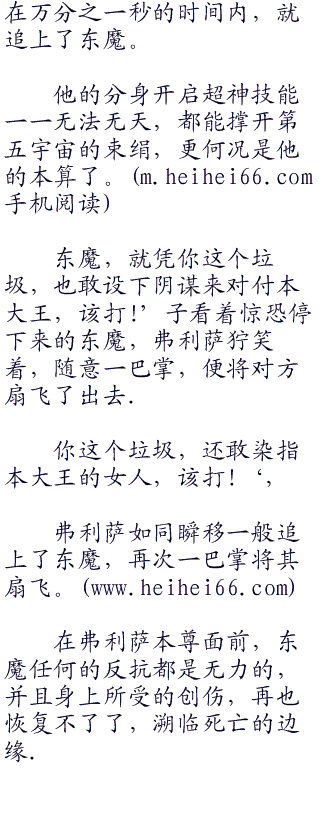 在万分之一秒的时间内，就
追上了东魔。
他的分身开启超神技能
一一无法无天，都能撑开第
五宇宙的束绢，更何况是他
的本算了。(m.heihei66.com
手机阅读)
东魔，就凭你这个垃
圾，也敢设下阴谋来对付本
大王，该打!’子看着惊恐停
下来的东魔，弗利萨狞笑
着，随意一巴掌，便将对方
扇飞了出去.
你这个垃圾，还敢染指
本大王的女人，该打！‘，
弗利萨如同瞬移一般追
上了东魔，再次一巴掌将其
扇飞。(www.heihei66.com)
在弗利萨本尊面前，东
魔任何的反抗都是无力的，
并且身上所受的创伤，再也
恢复不了了，溯临死亡的边
缘.